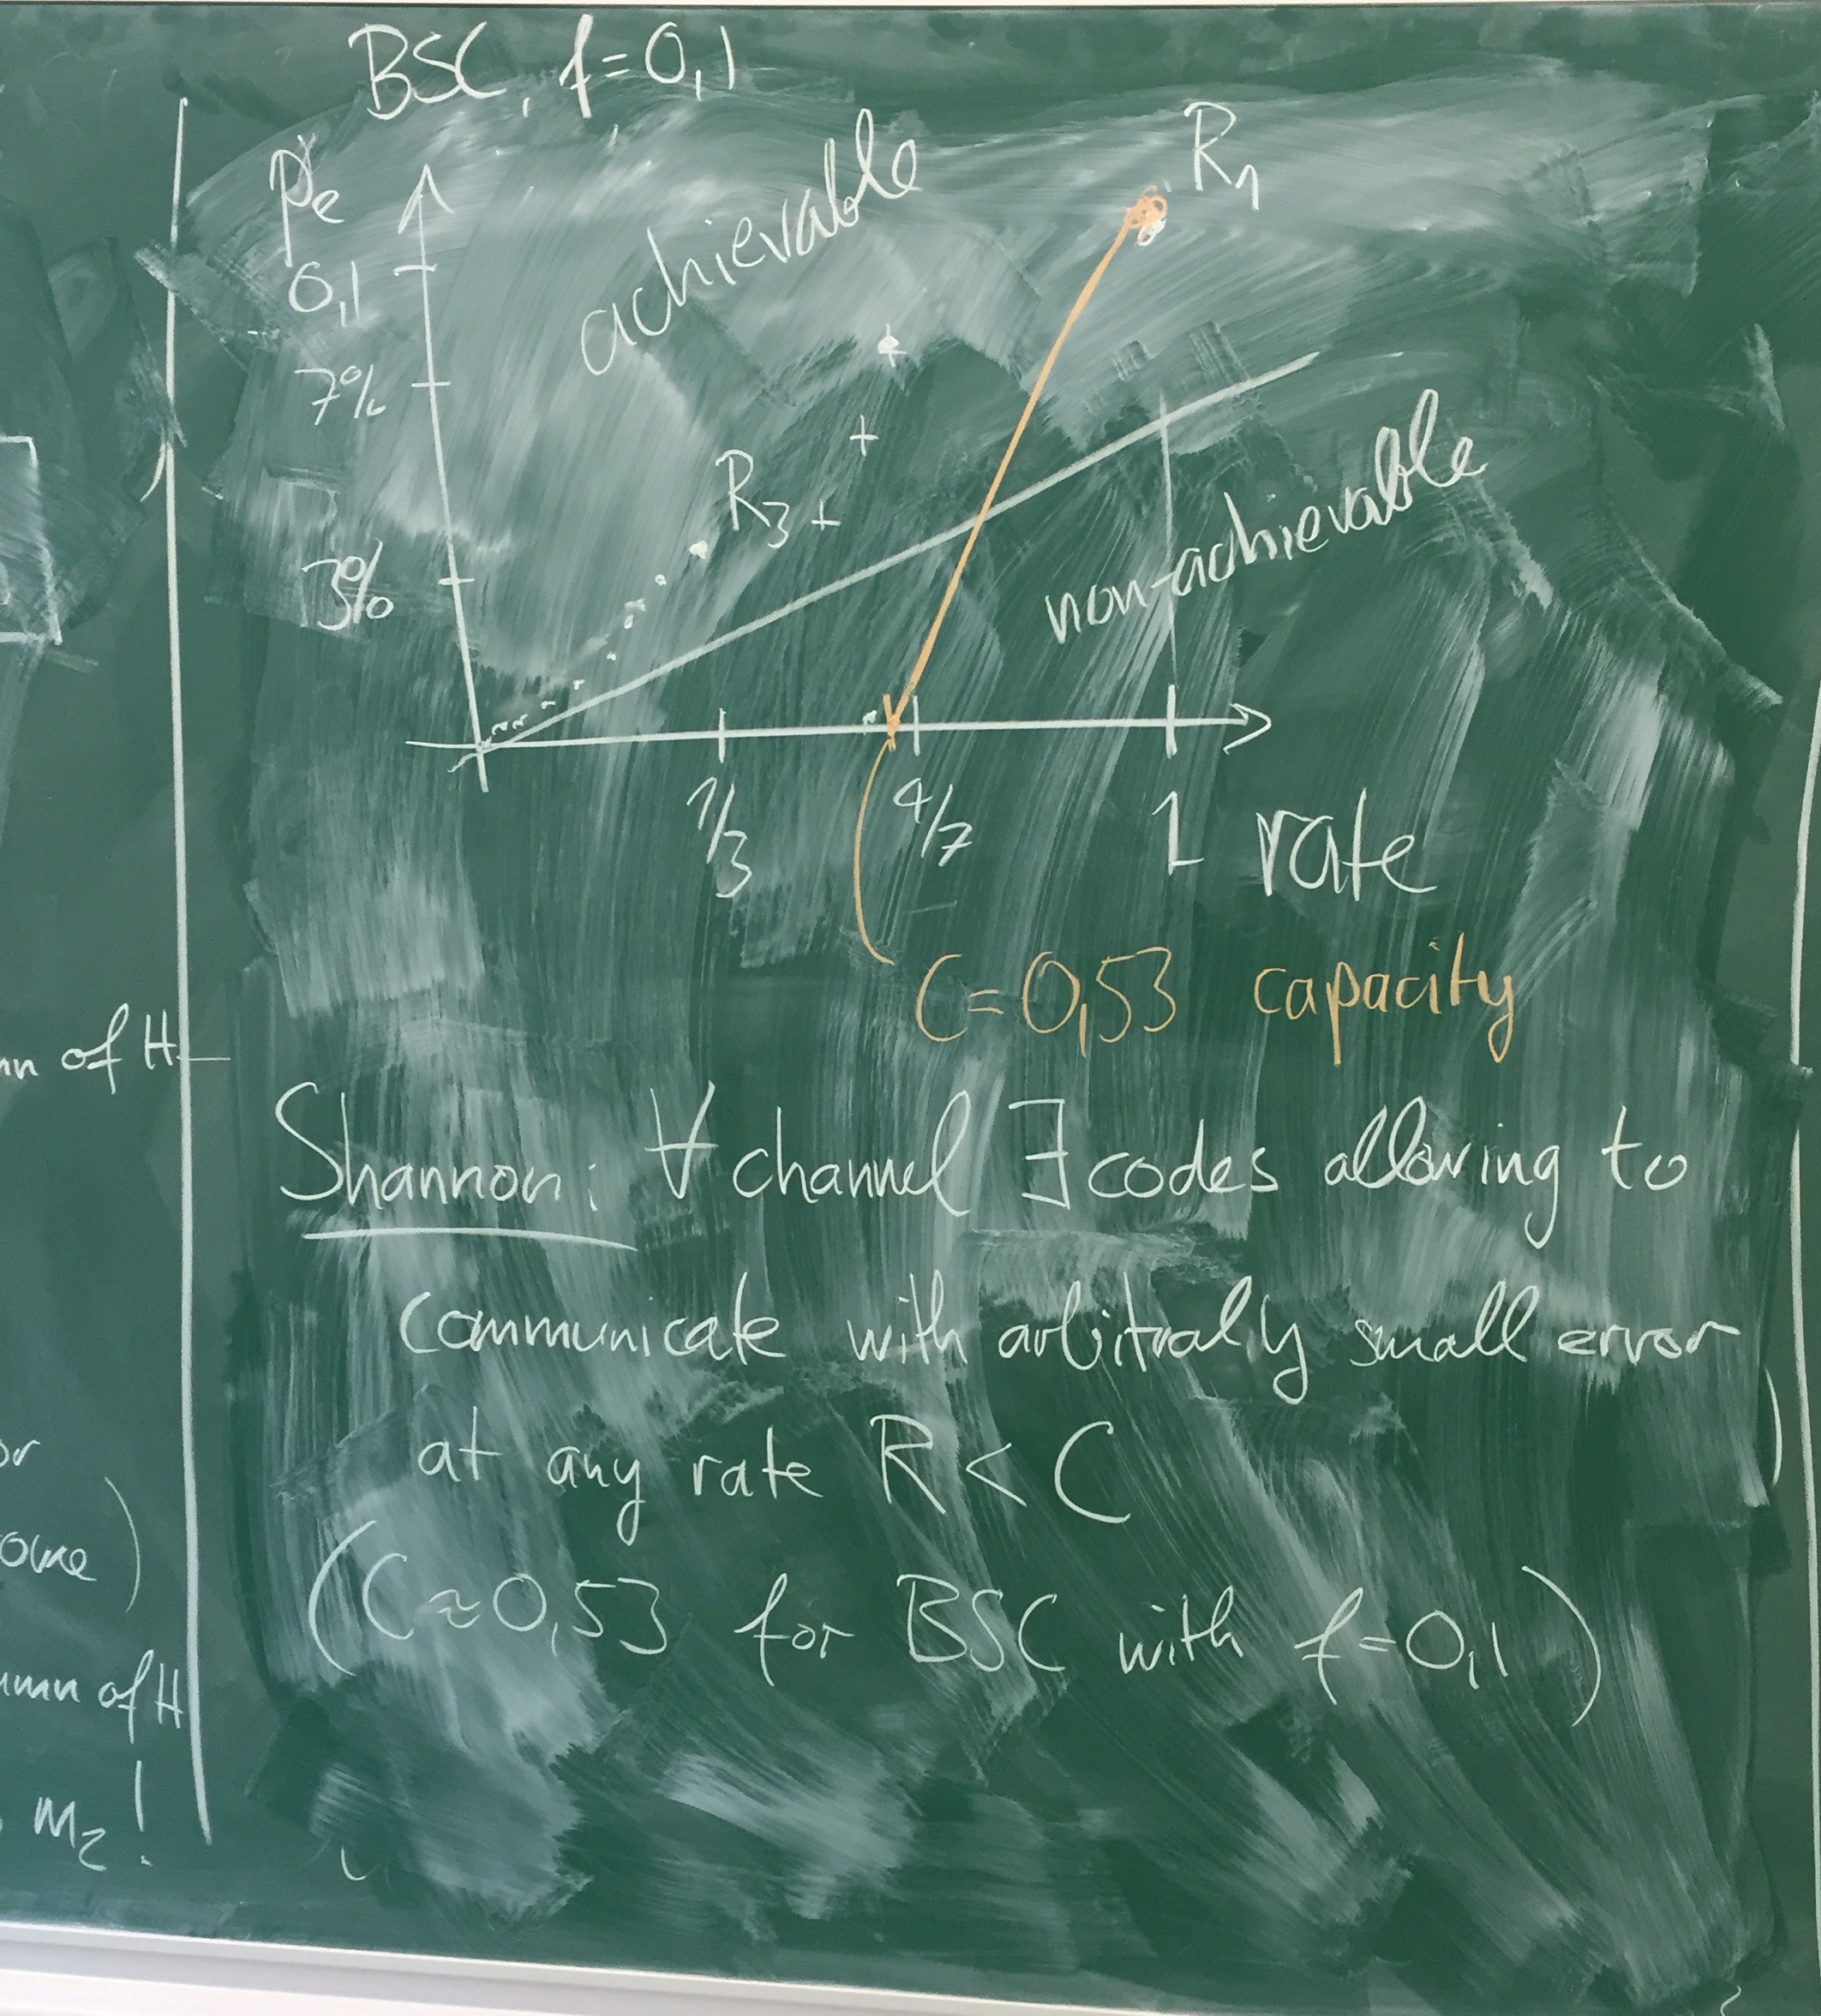 BSC, f=0,1
pe
0,1
7%
3%
achievable
R1
R3
non-achievable
1/3
4/7
1
rate
C=0,53 capacity
Shannon: ∀ channel ∃ codes allowing to
communicate with arbitraly small error
at any rate R < C
(C≈0,53 for BSC with f=0,1)
of H
or
of H
m2!